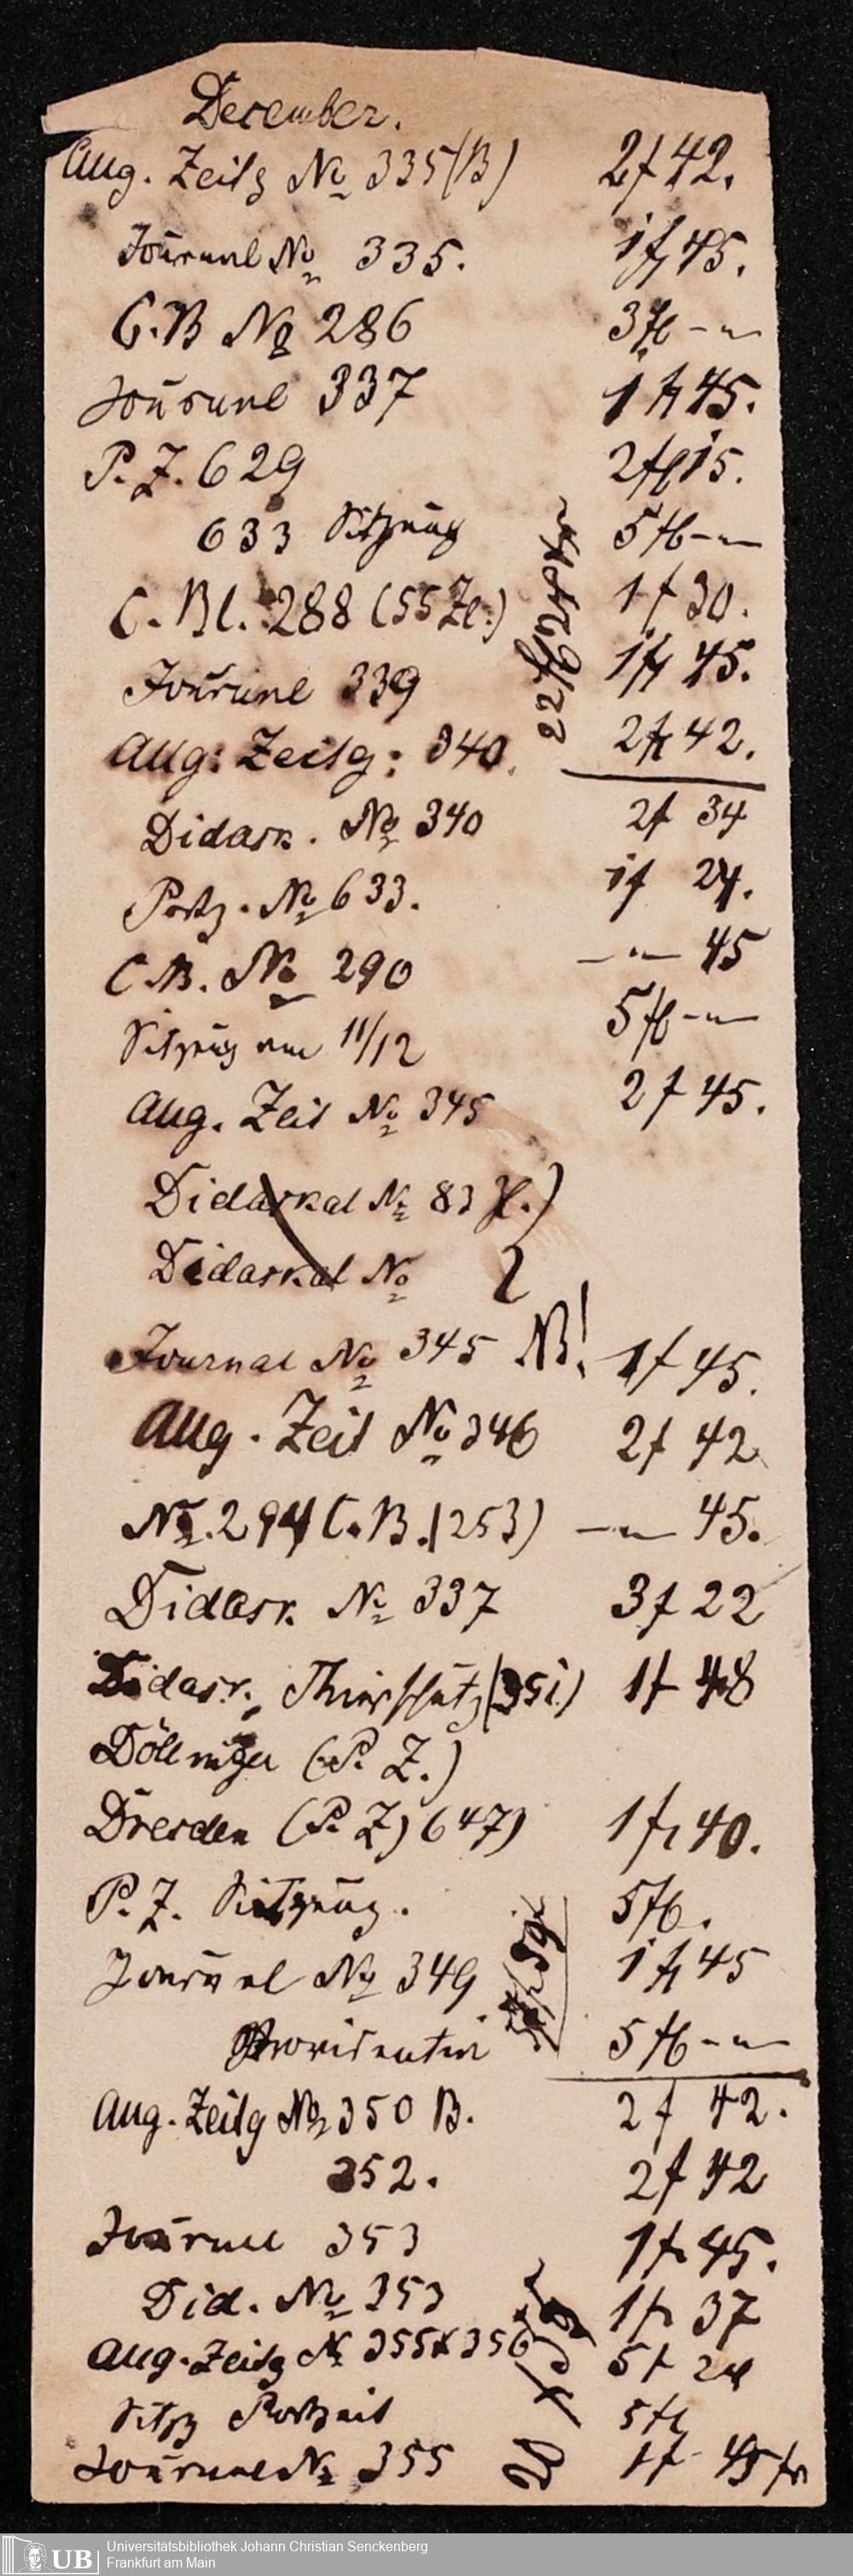 December.
Aug. Zeitg No 335 (B) 2f 42.
Journal No 335. 1f 45.
C.B No 286 3fl - "
Journal 337 1f 45.
P. Z. 629 2fl 15.
633 Sitzung 5fl - "
C. Bl. 288 (55 Ze.) 1f 30.
Journal 339 1f 45.
Aug: Zeitg: 340. 2f 42.
22fl 24
Didask. No 340 2f 34
Postz. No 633. 1f 24.
C.B. No 290 - " 45
Sitzung am 11/12 5fl - "
Aug. Zeit No 345 2f 45.
Didaskal No 83
Didaskal No
Journal No 345 NB! 1f 45.
Aug. Zeit No 346 2f 42
No. 294 C.B. (253) - " 45.
Didask. No 337 3f 22
Didask., Thierschutz (351) 1f 48
Döllinger (P. Z.)
Dresden (P. Z) 647) 1f 40.
P. Z. Sitzung. 5fl.
Journal No 349 1f 45
Providentia 5fl - "
Aug. Zeitg No 350 B. 2f 42.
352. 2f 42
Journal 353 1f 45.
Did. No 353 1f 37
Aug. Zeitg No 355 & 356 5f 24
Sitzg Postzeit 5fl
Journal No 355 1f 45
20
UB Universitätsbibliothek Johann Christian Senckenberg
Frankfurt am Main